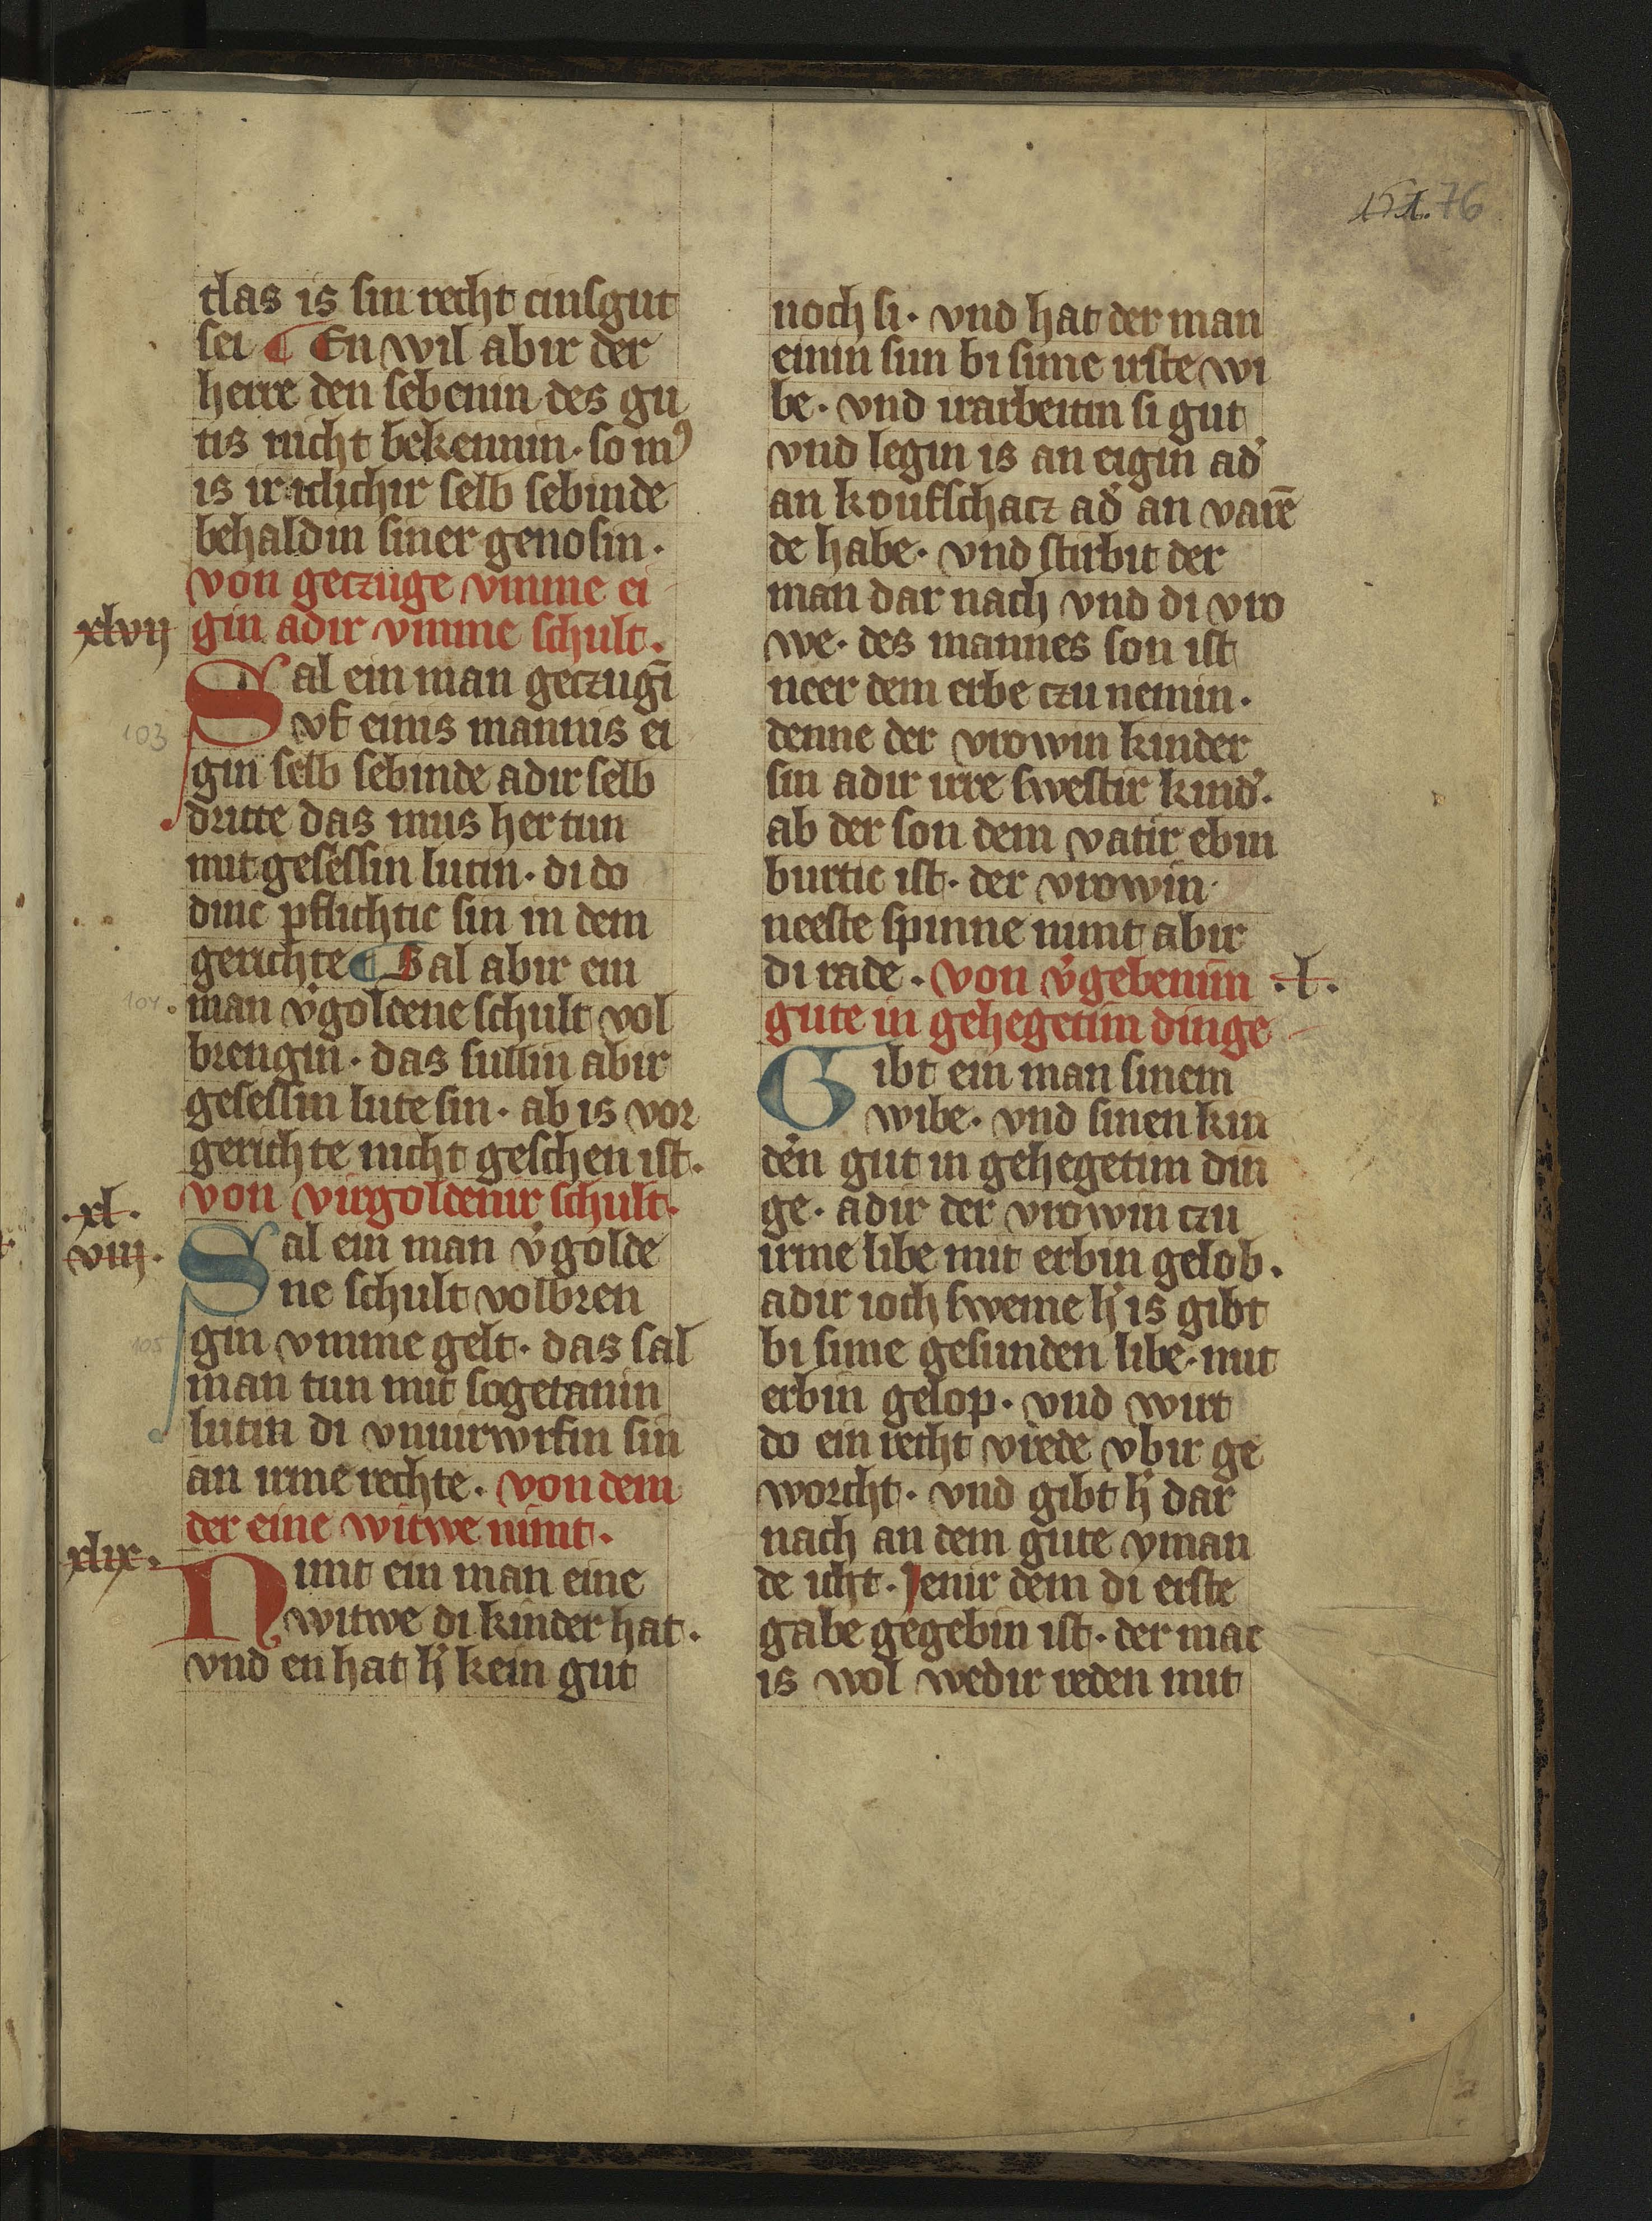 151. 76
das is sin recht cinsgut
sei ¶ En wil abir der
herre den sebenin des gu
tis nicht bekennin· so mꝰ
is ir iclichir selb sebinde
behaldin siner genosin·
von geczuge vmme ei
xlvij gin adir vmme schult·
Sal ein man geczugī
103 vf einis mannis ei
gin selb sebinde adir selb
dritte das mus her tun
mit gesessin lutin· di do
dinc pflichtic sin in dem
gerichte ¶ Sal abir ein
104. man v̓goldene schult vol
brengin· das sullin abir
gesessin lute sin· ab is vor
gerichte nicht geschen ist·
·xl· von virgoldenir schult·
viij· Sal ein man v̓golde
ne schult volbren
105 gin vmme gelt· das sal
man tun mit sogetanin
lutin di vnuirwrfin sin
an irme rechte· von dem
der eine witwe nimt·
xlix· Nimt ein man eine
witwe di kinder hat·
vnd en hat h̓ kein gut
noch si· vnd hat der man
einin sun bi sime irste wi
be· vnd irarbeitin si gut
vnd legin is an eigin ad̓
an koufschacz ad̓ an varē
de habe· vnd stirbit der
man dar nach vnd di vro
we· des mannes son ist
neer dem erbe czu nemin·
denne der vrowin kinder
sin adir irre swestir kind̓·
ab der son dem vatir ebin
burtic ist· der vrowin
neeste spinne nimt abir
di rade· von v̓gebenim ·l·
gute in gehegetim dinge
Gibt ein man sinem
wibe· vnd sinen kin
den gut in gehegetim din
ge· adir der vrowin czu
irme libe mit erbin gelob·
adir ioch sweme h̓ is gibt
bi sime gesunden libe· mit
erbin gelop· vnd wirt
do ein recht vrede vbir ge
worcht· vnd gibt h̓ dar
nach an dem gute yman
de icht· Jenir dem di erste
gabe gegebin ist· der mac
is wol wedir reden mit